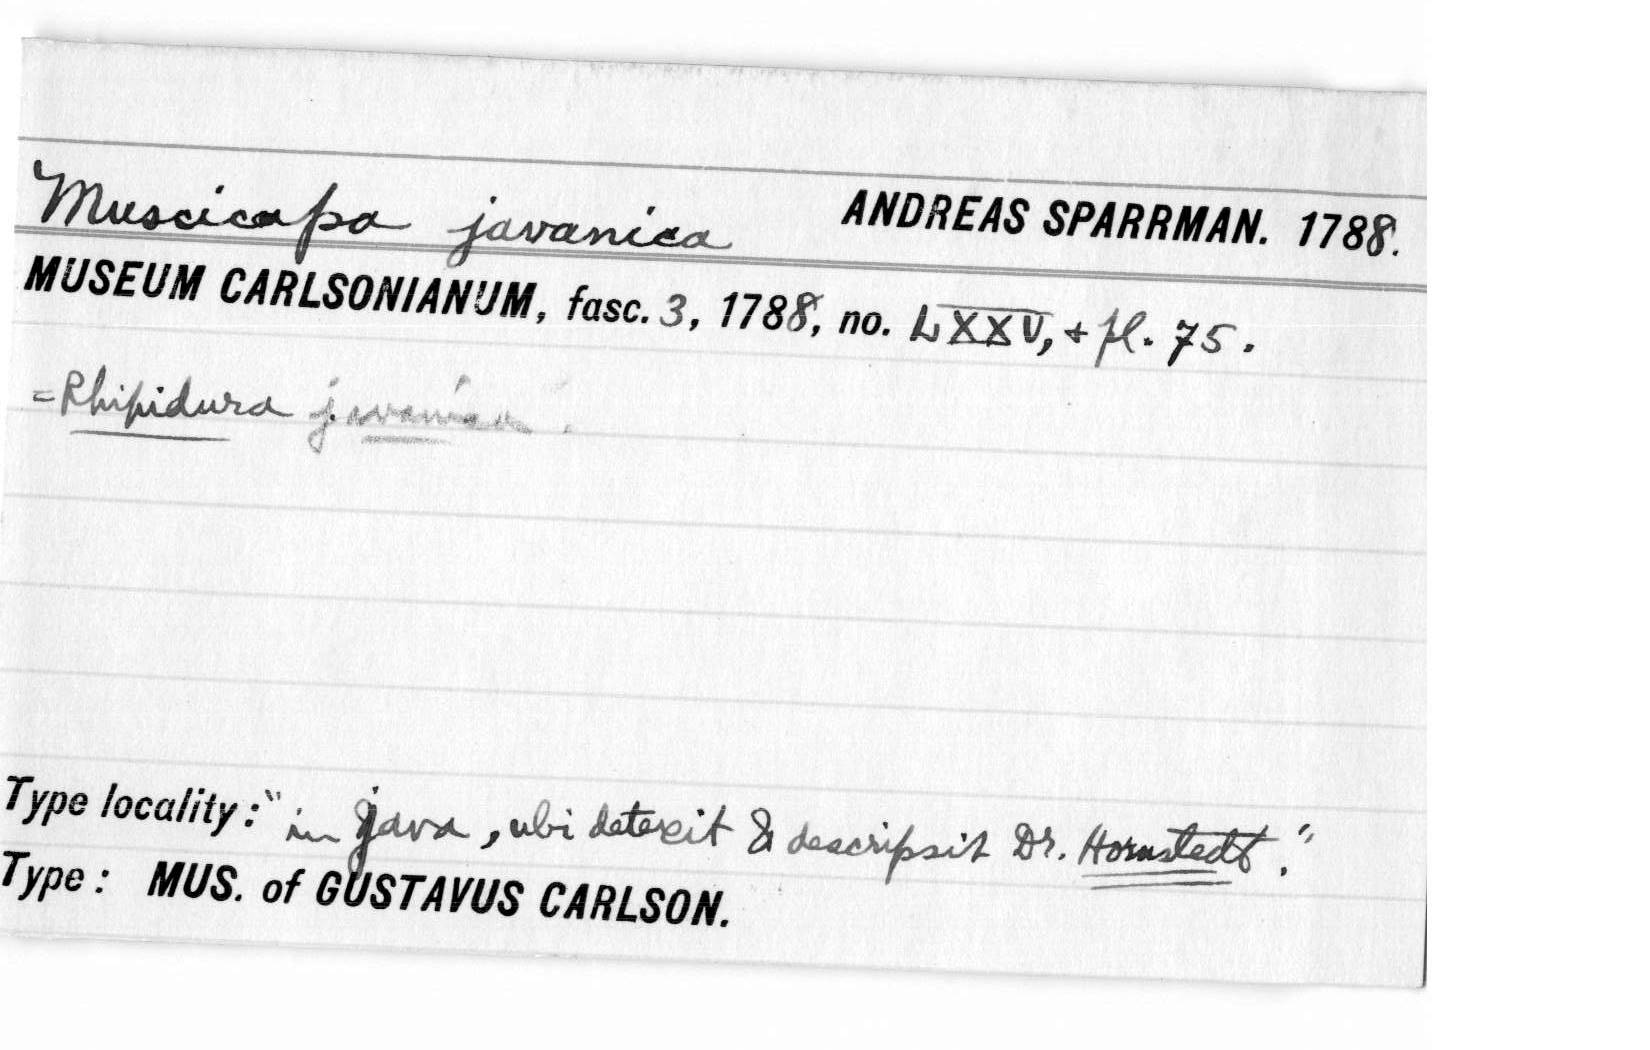 Muscicapa javanica ANDREAS SPARRMAN. 1788.
MUSEUM CARLSONIANUM, fasc. 3, 1788, no. LXXV, + pl. 75.
= Rhipidura javanica.
Type locality: "in Java, ubi detexit & descripsit Dr. Hornstedt."
Type: MUS. of GUSTAVUS CARLSON.